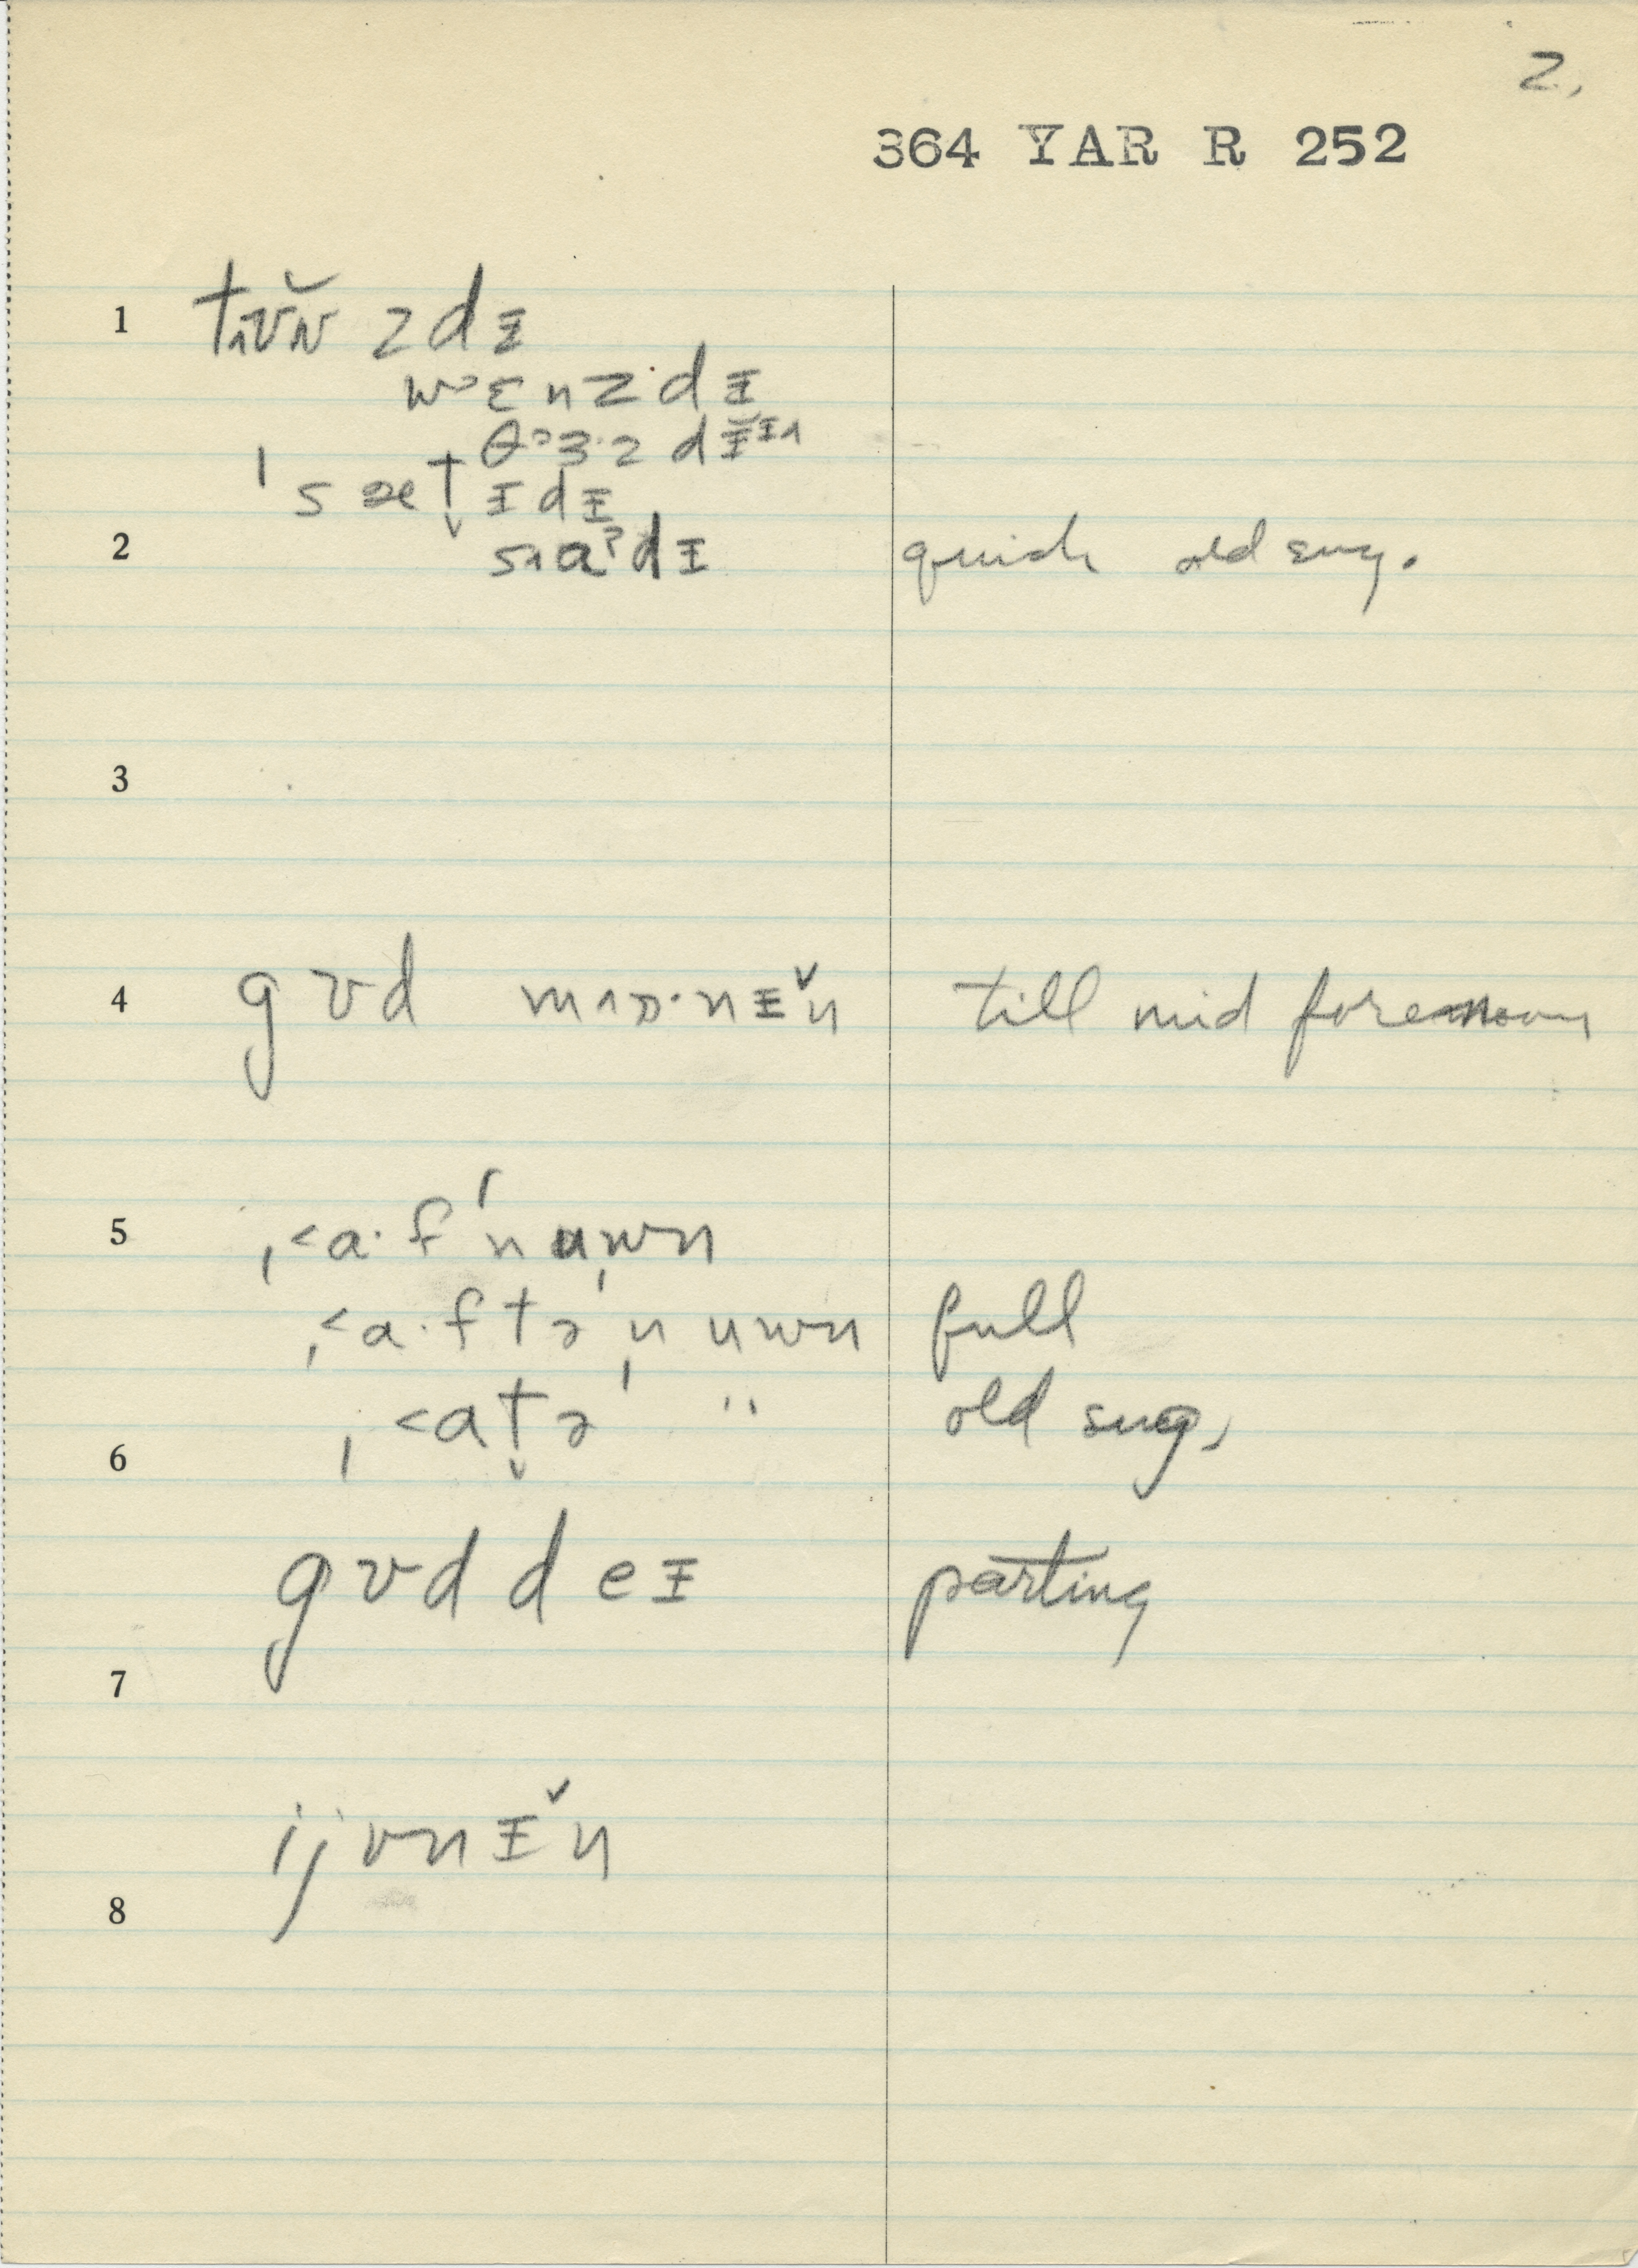 2.
364 YAR R 252
1 tɪʊ̆ʌ zdɪ
wᵊɛnzdɪ
θᵊɜ·z dɪ
ˈsætɪdɪ
2 sɪaˀdɪ quick old sug.
3
4 gʊd mɒ·nɪ̌n till mid forenoon
5 ˌ<a·fˈnuwn
ˌ<a·ftəˈnuwn full
ˌ<atəˈ " old sug.
6
gʊd deɪ parting
7
ijvnɪ̌n
8